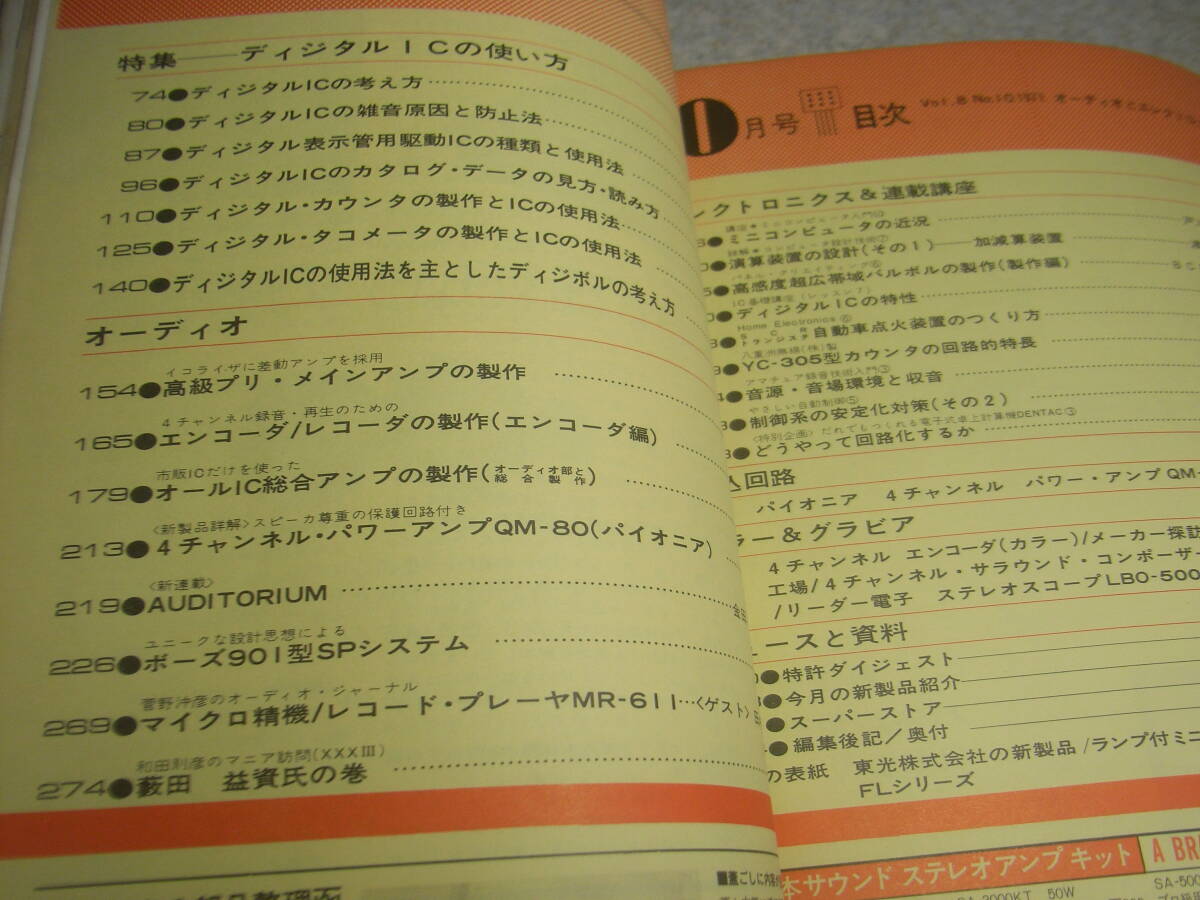 特集――ディジタルICの使い方
74●ディジタルICの考え方
80●ディジタルICの雑音原因と防止法
87●ディジタル表示管用駆動ICの種類と使用法
96●ディジタルICのカタログ・データの見方・読み方
110●ディジタル・カウンタの製作とICの使用法
125●ディジタル・タコメータの製作とICの使用法
140●ディジタルICの使用法を主としたディジボルの考え方
オーディオ
イコライザに差動アンプを採用
154●高級プリ・メインアンプの製作
4チャンネル録音・再生のための
165●エンコーダ/レコーダの製作(エンコーダ編)
市販ICだけを使った
179●オールIC総合アンプの製作(オーディオ部と総合製作)
〈新製品詳解〉スピーカ尊重の保護回路付き
213●4チャンネル・パワーアンプQM-80(パイオニア)
〈新連載〉
219●AUDITORIUM
ユニークな設計思想による
226●ボーズ901型SPシステム
菅野沖彦のオーディオ・ジャーナル
269●マイクロ精機/レコード・プレーヤMR-611…〈ゲスト〉
和田則彦のマニア訪問(XXXIII)
274●藪田 益資氏の巻
0月号 目次 Vol.8 No.10 1971 オーディオとエレクトロ
レクトロニクス&連載講座
●ミニコンピュータの近況
●演算装置の設計(その1)――加減算装置
●高感度超広帯域バルボルの製作(製作編)
IC基礎講座(レッスン7)
●ディジタルICの特性
Home Electronics⑥
●SCRトランジスタ自動車点火装置のつくり方
八重洲無線(株)製
●YC-305型カウンタの回路的特長
アマチュア録音技術入門③
●音源・音場環境と収音
やさしい自動制御⑤
●制御系の安定化対策(その2)
〈特別企画〉だれでもつくれる電子式卓上計算機DENTAC③
●どうやって回路化するか
込回路
パイオニア 4チャンネル パワー・アンプQM-
ラー&グラビア
4チャンネル エンコーダ(カラー)/メーカー探訪
工場/4チャンネル・サラウンド・コンポーザー
/リーダー電子 ステレオスコープLBO-500
ースと資料
●特許ダイジェスト
●今月の新製品紹介
●スーパーストア
●編集後記/奥付
の表紙 東光株式会社の新製品/ランプ付ミニ
FLシリーズ
■蓋ごしに内容
本サウンド ステレオアンプ キット
A BRA
SA-2000KT 50W
SA-500